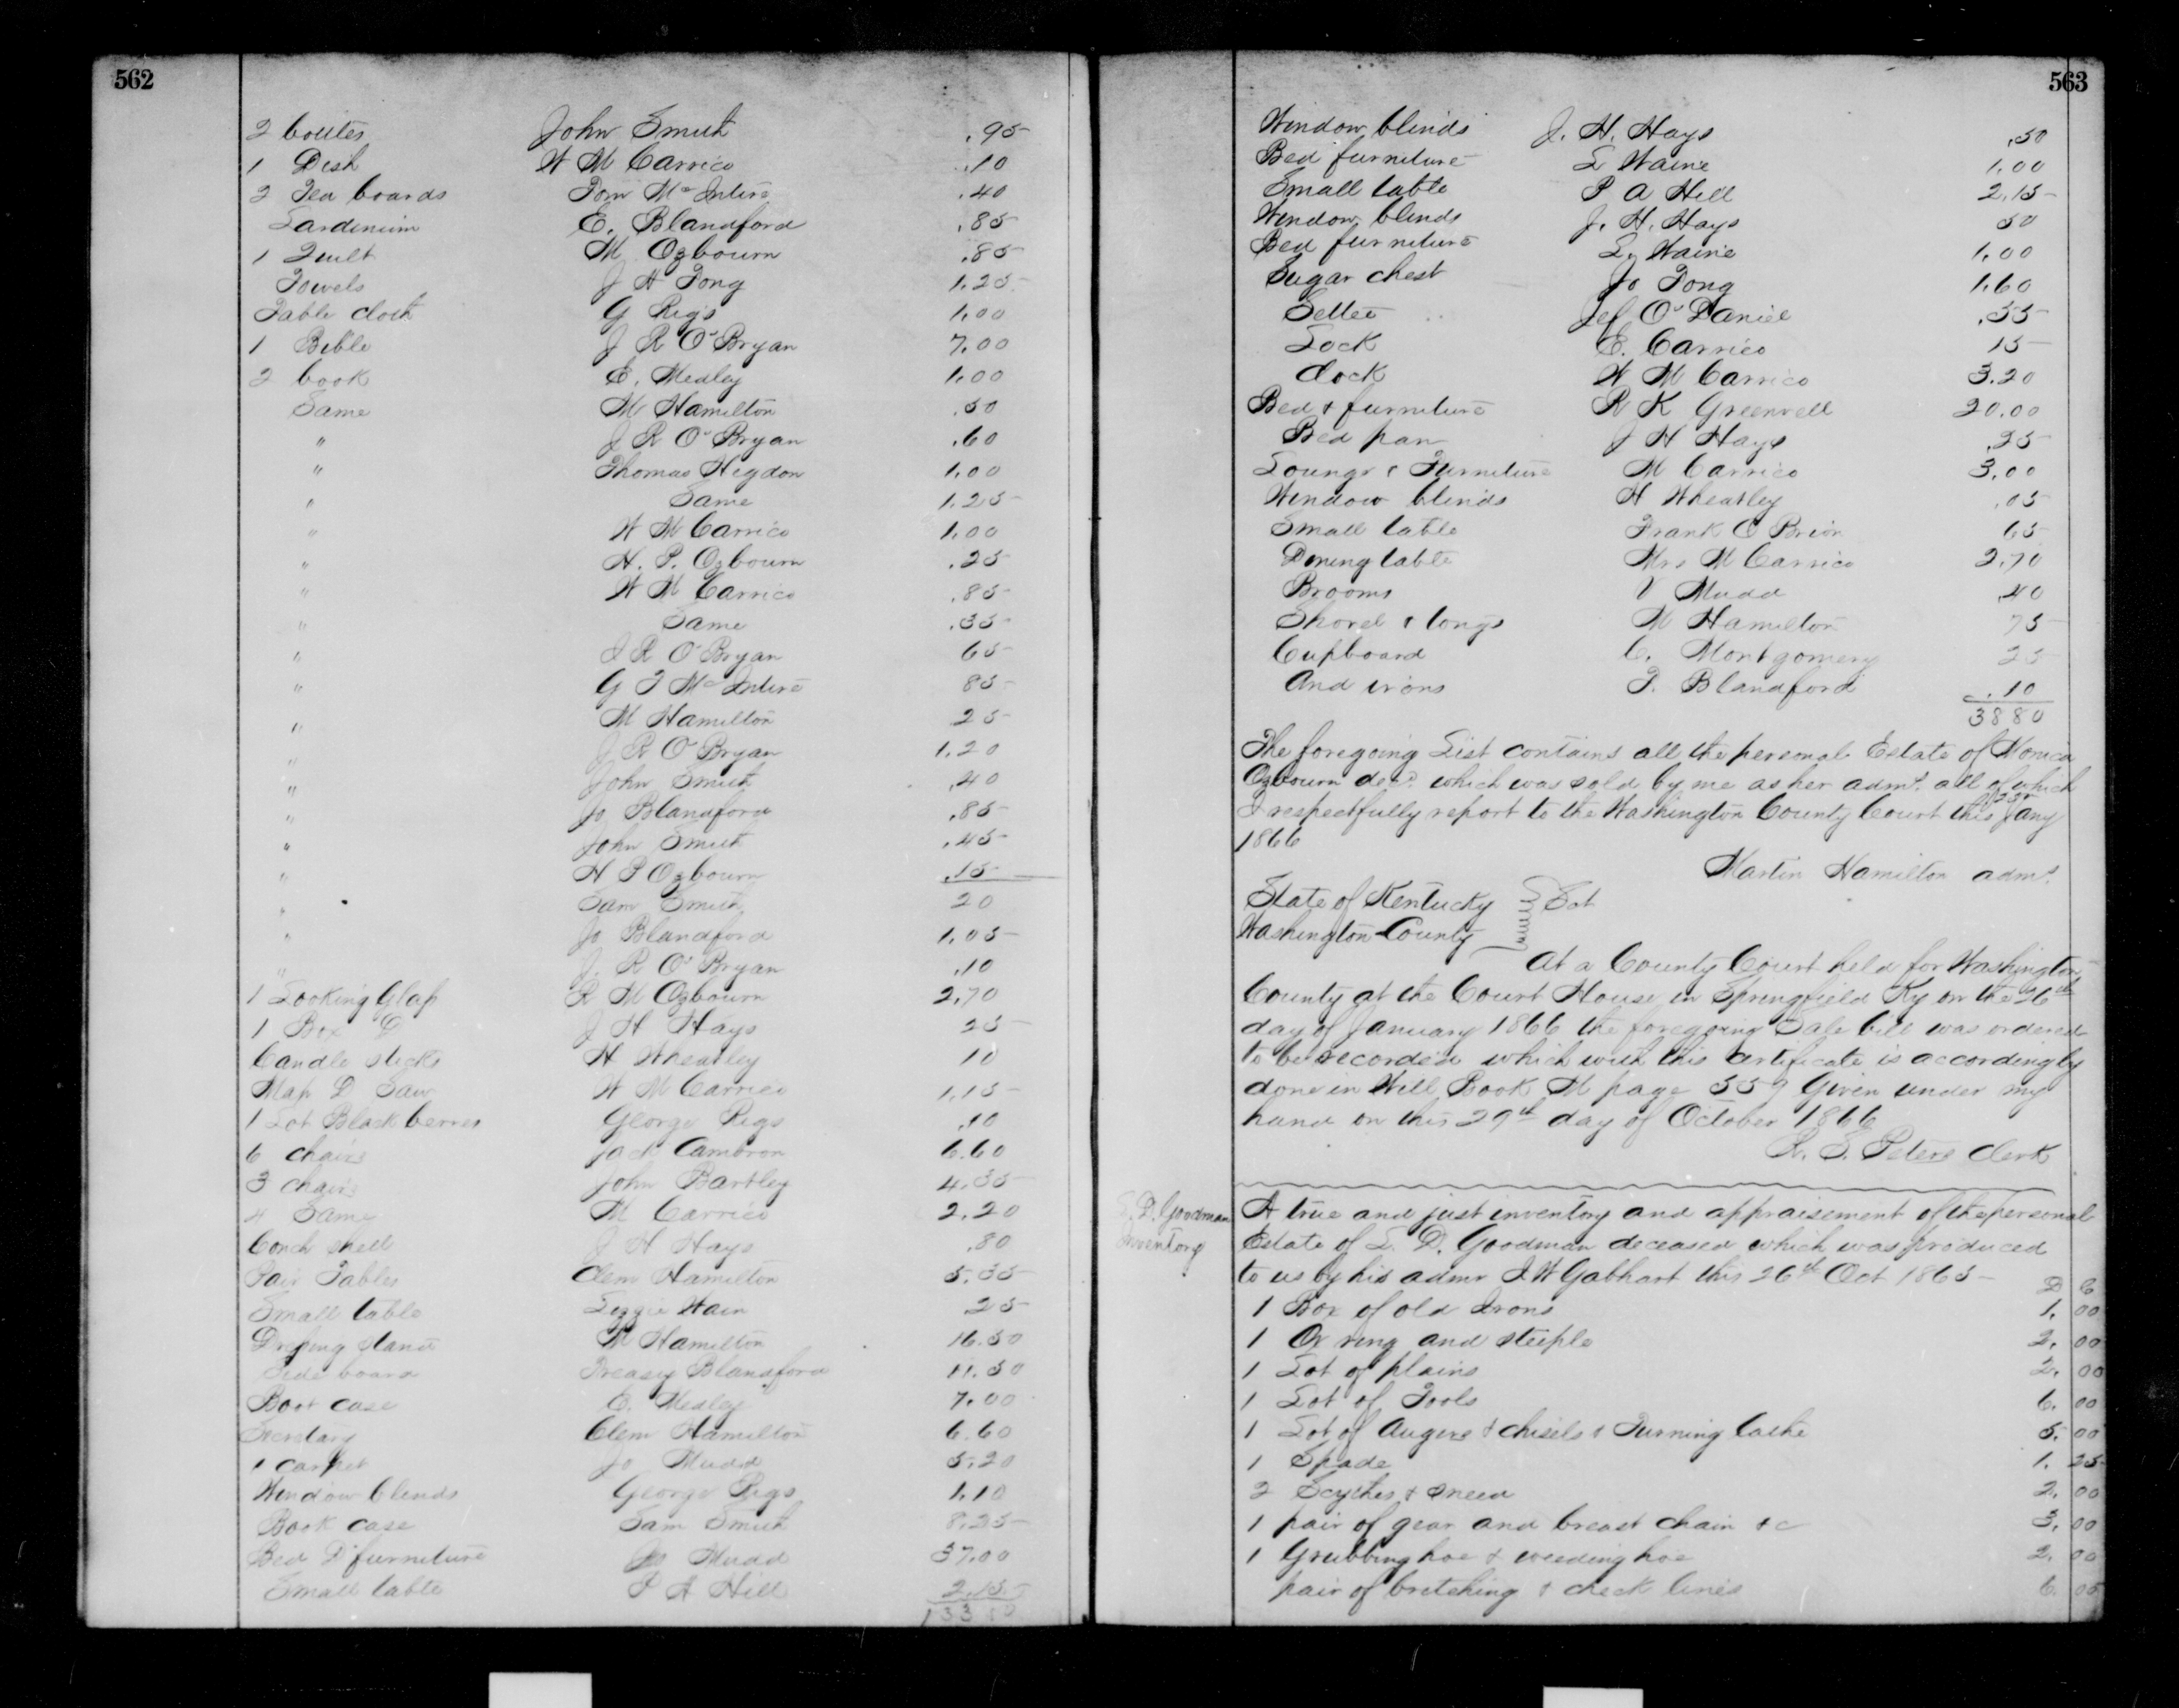 562
2 boltes John Smith .95
1 Dish W M Carrico .10
2 Tea boards Tom McIntire .40
E. Blandford .85
1 Quilt M Ozbourn .85
Towels J H Tong 1.25
Table cloth G Rigs 1.00
1 Bible J R O'Bryan 7.00
2 book E. Medley 1.00
Same M Hamilton .50
" J R O'Bryan .60
" Thomas Higdon 1.00
" Same 1.25
" W M Carrico 1.00
" H. P. Ozbourn .25
" W M Carrico .85
" Same .35
" J R O'Bryan 65
" G T McIntire 85
" M Hamilton 25
" J R O'Bryan 1.20
" John Smith .40
" Jo Blandford .85
" John Smith .45
" H P Ozbourn .15
" Sam Smith 20
" Jo Blandford 1.05
" J. R O'Bryan .10
1 Looking Glass R M Ozbourn 2.70
1 Box D J H Hays 25
Candle sticks H Wheatley 10
Map D Saw W M Carrico 1.15
1 Lot Black berries George Rigs .10
6 chairs Jack Cambron 6.60
3 chairs John Bartley 4.35
4 Same M Carrico 2.20
Conch shell J H Hays .80
Pair Tables Clem Hamilton 5.35
Small table Lizzie Wain 25
Dressing stand M Hamilton 16.50
Side board Treasy Blandford 11.50
Book case E. Medley 7.00
Secretary Clem Hamilton 6.60
1 carpet Jo Mudd 5.20
Window blinds George Rigs 1.10
Book case Sam Smith 8.25
Bed D furniture Jo Mudd 37.00
Small table P A Hill 2.15
563
Window blinds J. H. Hays .50
Bed furniture L Waine 1.00
Small table P A Hill 2.15
Window blinds J. H. Hays 50
Bed furniture L. Waine 1.00
Sugar chest Jo Tong 1.60
Settee Jef O'Daniel .55
Lock E. Carrico 15
Clock W M Carrico 3.20
Bed & furniture R K Greenwell 20.00
Bed pan J H Hays .25
Lounge & Furniture M Carrico 3.00
Window blinds H Wheatley .05
Small table Frank O Brion 65
Dining table Mrs M Carrico 2.70
Brooms V Mudd .40
Shovel & tongs M Hamilton 75
Cupboard C. Montgomery 25
And irons T. Blandford .10
3880
The foregoing List contains all the personal Estate of Monica
Ozbourn decd. which was sold by me as her admr. all of which
I respectfully report to the Washington County Court this Jany
1866
Martin Hamilton admr.
State of Kentucky Sct
Washington County
At a County Court held for Washington
County at the Court House in Springfield Ky on the 26th
day of January 1866 the foregoing Sale bill was ordered
to be recorded which with this certificate is accordingly
done in Will Book M page 559 Given under my
hand on this 29th day of October 1866
R. S. Peters Clerk
D. Goodman
Inventory
A true and just inventory and appraisement of the personal
Estate of L. D. Goodman deceased which was produced
to us by his admr J W Gabhart this 26th Oct 1865
D C
1 Box of old Irons 1. 00
1 Ox ring and steeple 2. 00
1 Lot of plains 2. 00
1 Lot of Tools 6. 00
1 Lot of Augers & chisels & Turning lathe 5. 00
1 Spade 1. 25
2 Scythes & snead 2. 00
1 pair of gear and breast chain &c 3. 00
1 Grubbing hoe & weeding hoe 2. 00
pair of bretching & check lines 6.